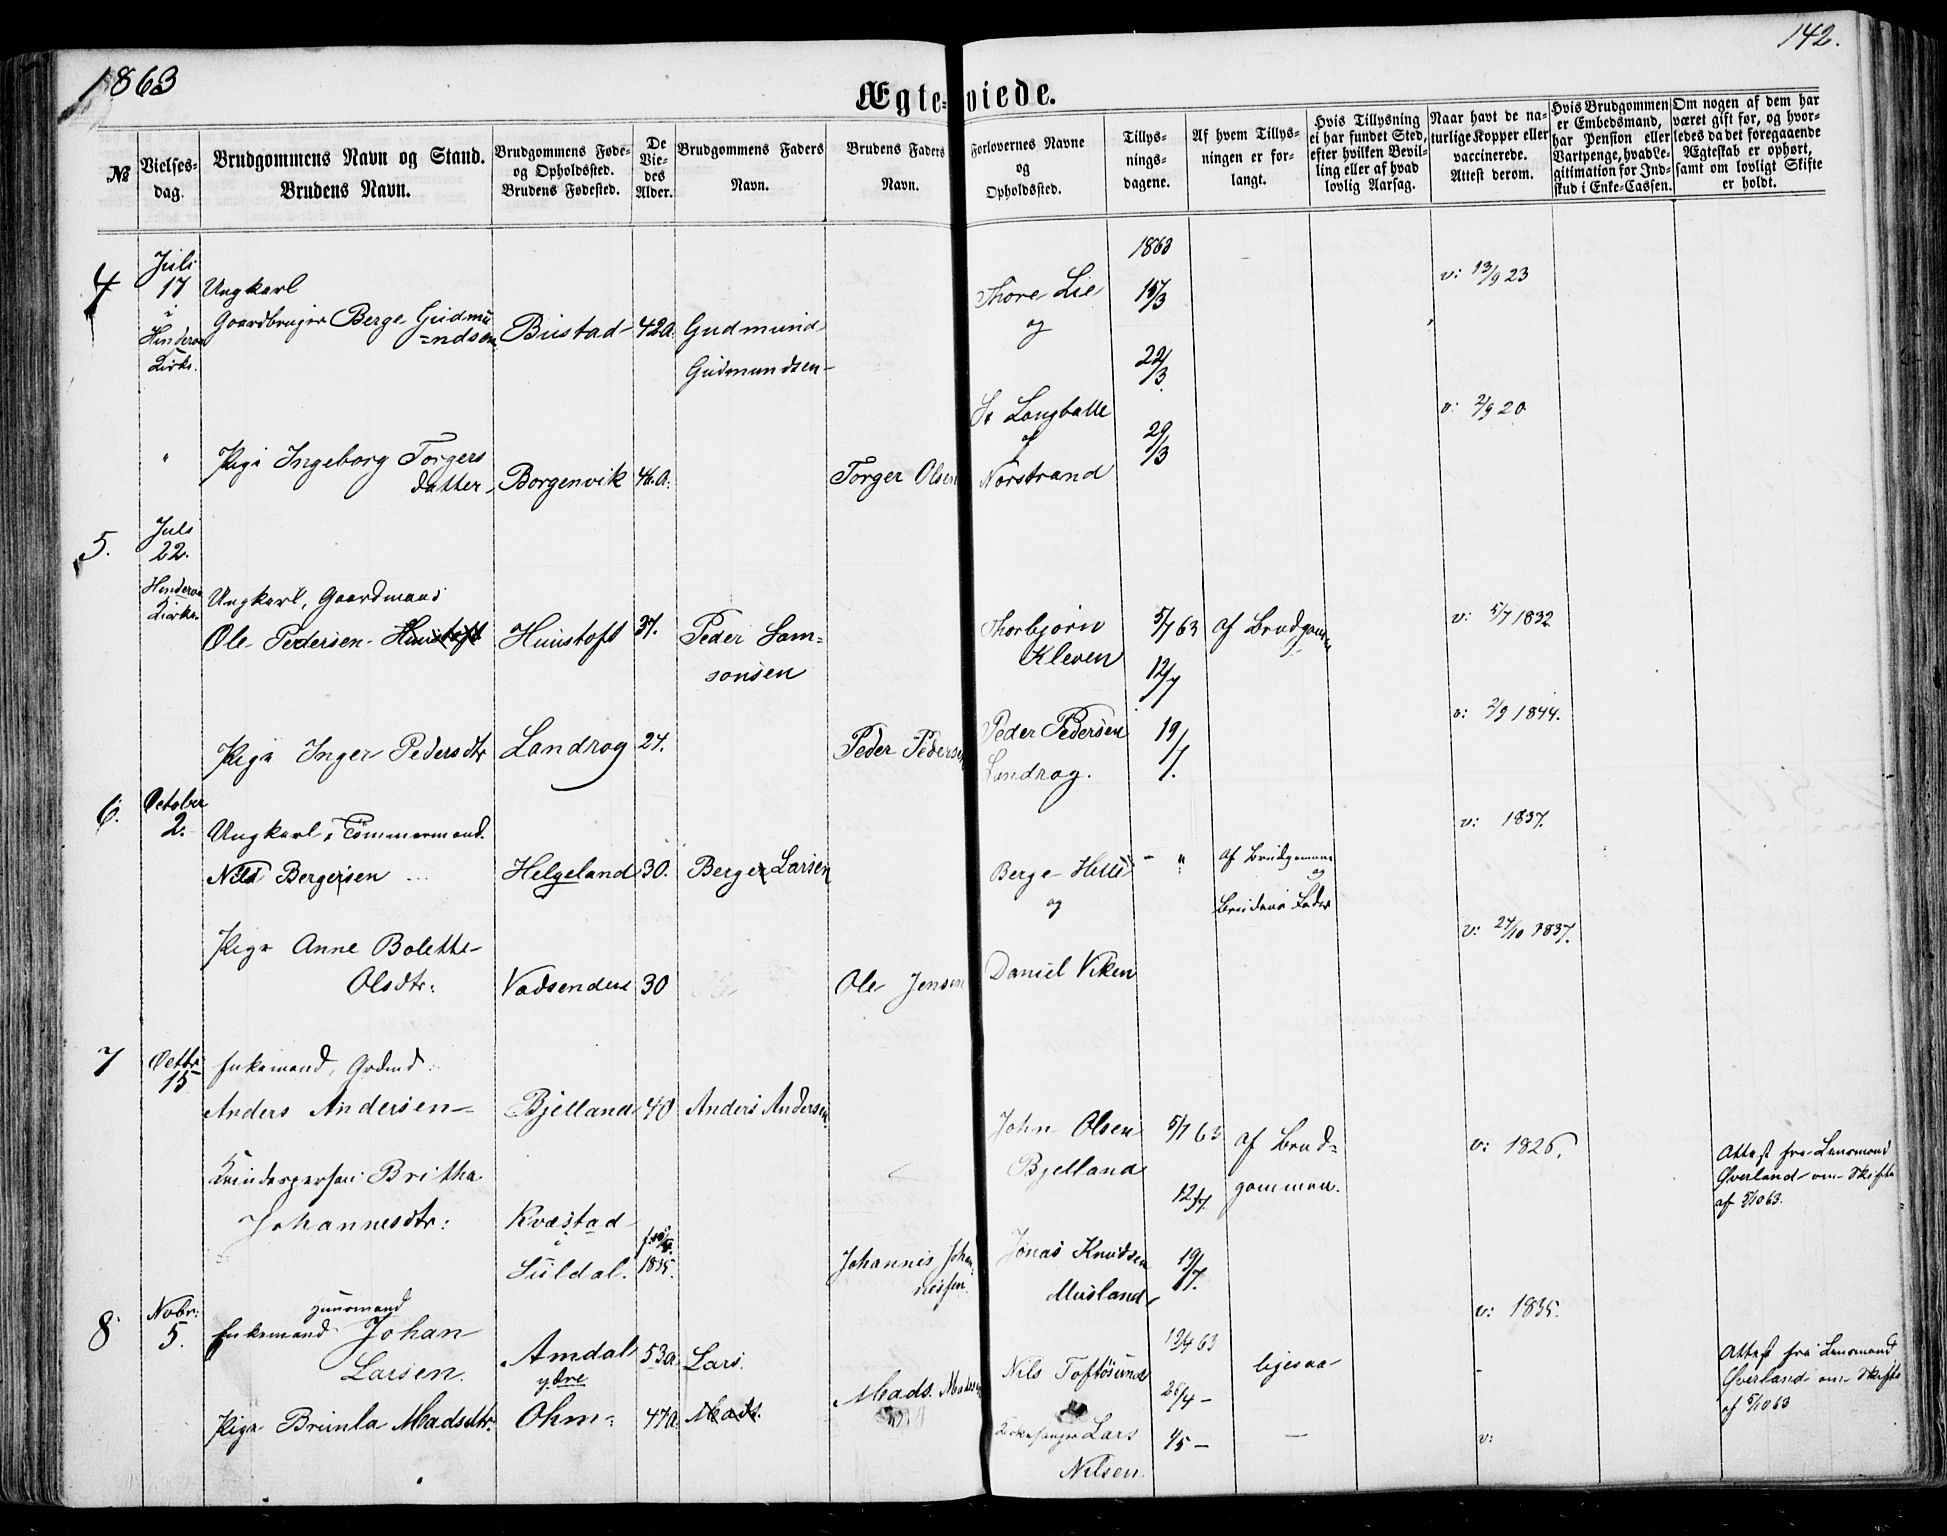 1863
142.
Ægteviede.
№
Vielses-
dag.
Brudgommens Navn og Stand.
Brudens Navn.
Brudgommens Føde-
og Opholdssted.
Brudens Fødested.
De
Vie-
des
Alder.
Brudgommens Faders
Navn.
Brudens Faders
Navn.
Forlovernes Navne
og
Opholdssted.
Tillys-
nings-
dagene.
Af hvem Tillys-
ningen er for-
langt.
Hvis Tillysning
ei har fundet Sted,
efter hvilken Bevil-
ling eller af hvad
lovlig Aarsag.
Naar havt de na-
turlige Kopper eller
vaccinerede.
Attest derom.
Hvis Brudgommen
er Embedsmand,
har Pension eller
Vartpenge, hvad Le-
gitimation for Ind-
skud i Enke-Cassen.
Om nogen af dem har
været gift før, og hvor-
ledes da det foregaaende
Ægteskab er ophørt,
samt om lovligt Skifte
er holdt.
4
Juli
17
i
Hinderaa
Kirke.
Ungkarl
Gaardbruger Berge Gudmu
=ndsen
Bustad
42 a.
Gudmund
Gudmundsen
Thore Lie
og
1863
15/3
22/3.
29/3
v: 13/9 23
" Pige Ingeborg Torgers
datter,
Borgenvik
46 a.
Torger Olsen
Langballe
af
Norstrand
v: 2/9 20
5.
Juli
22.
Hinderaa
Kirke.
Ungkarl, Gaardmand
Ole Pedersen Huustoft
Huustoft
37.
Peder Sam=
sonsen
Thorbjørn
Kleven
5/7 63
12/7
19/7.
af Brudgom
v: 5/7 1832
Pige Inger Pedersdtr
Landrog
24.
Peder Pedersen
Peder Pedersen
Landrog.
v: 2/9 1844.
6.
October
2.
Ungkarl, Tømmermand.
Nils Bergersen
Helgeland
30.
Berger Larsen
Berge Helle
og
- "
af Brudgommen
og
Brudens Fader
v: 1837.
Pige Anne Bolette
Olsdtr:
Vadsenden
30
Ole Jensen
Daniel Viken
v: 24/10 1837.
7
Octbr:
15
Enkemand, Grdmd:
Anders Andersen
Bjelland
40
Anders Andersen
John Olsen
Bjelland
5/7 63
12/7.
19/7.
af Brud=
gommen.
v: 1826.
Attest fra Lensmand
Øverland om Skifte
af 5/10 63.
Qvindesperson Britha
Johannesdtr:
Kvæstad
i
Suldal.
1835.
Johannis Johan
nessen.
Jonas Knudsen
Musland
v: 1835.
8
Novbr:
5.
Huusmand
Enkemand Johan
Larsen.
Amdal
ydre
53 a.
Lars.
Nils Toftøsund
12/4 63
26/4 -
4/5 -
ligesaa
-
Attest fra Lensmand
Øverland om Skifte
af 5/10 63
Pige Brunla Madsdtr.
Ohm
47 a.
Mads.
Mads Madsen
Kirkesanger Lars
Nilsen.
-
v: